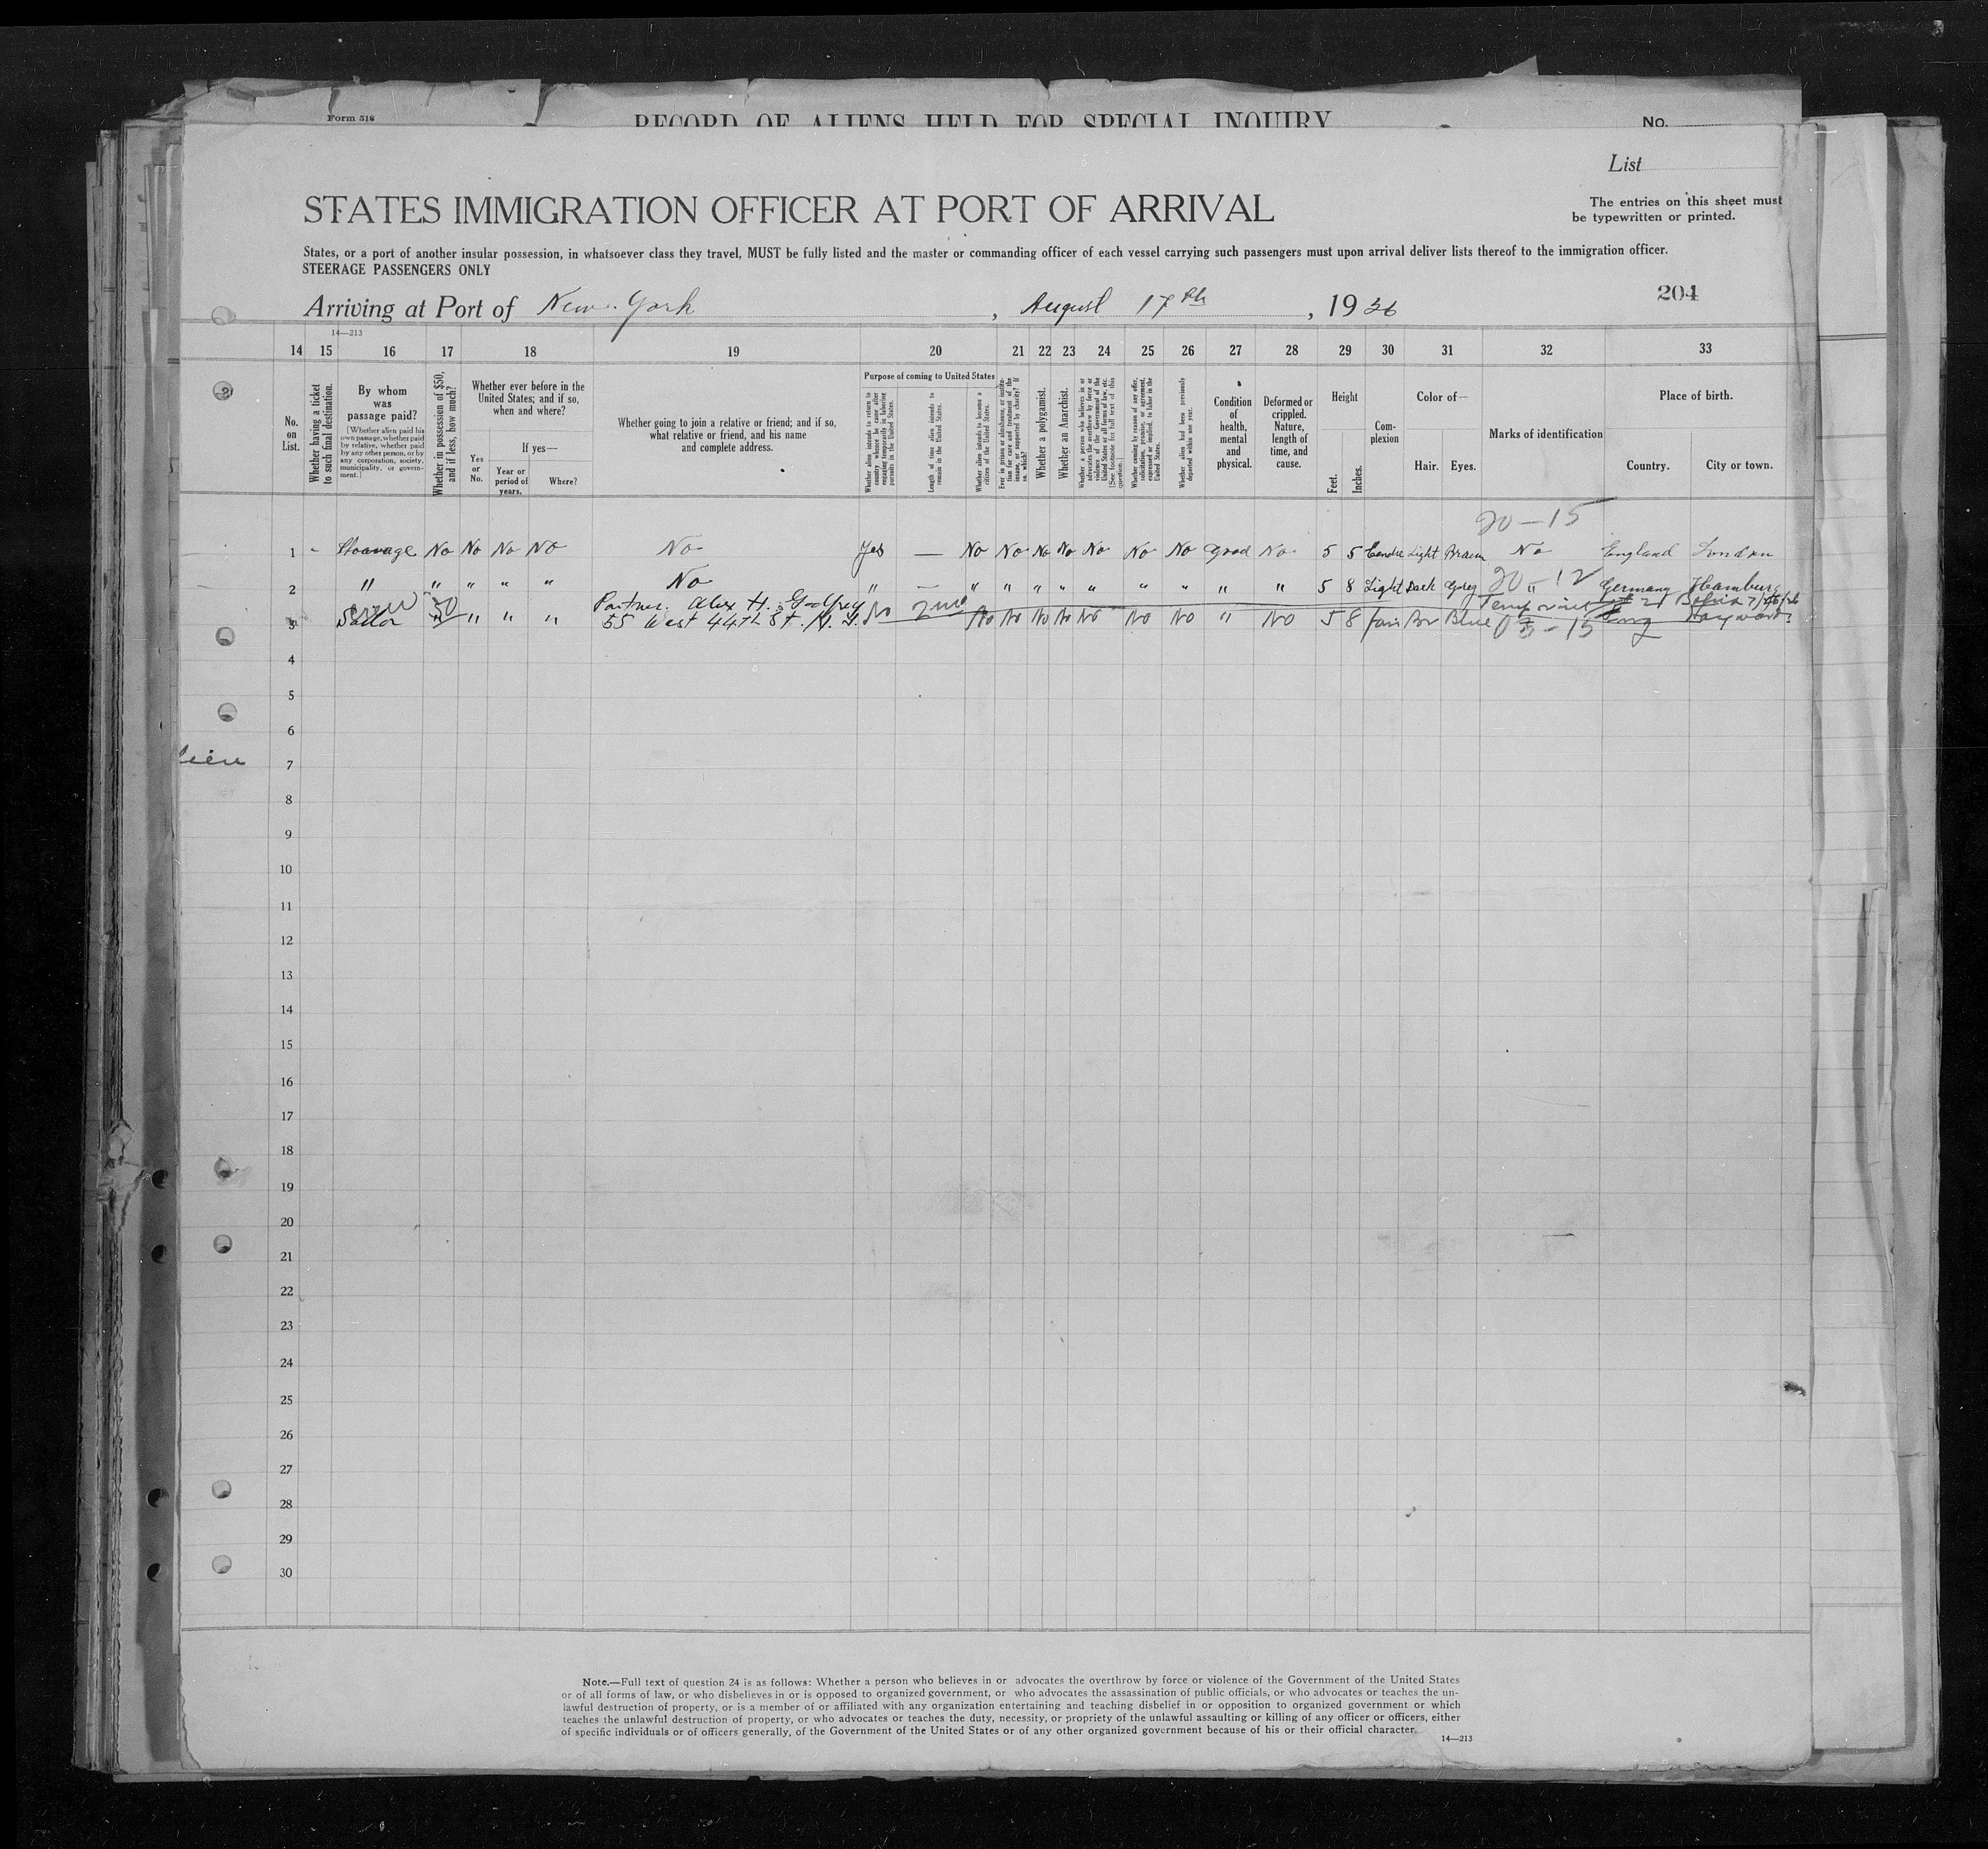 Form 518
RECORD OF ALIENS HELD FOR SPECIAL INQUIRY
No.
List
STATES IMMIGRATION OFFICER AT PORT OF ARRIVAL
The entries on this sheet must
be typewritten or printed.
States, or a port of another insular possession, in whatsoever class they travel, MUST be fully listed and the master or commanding officer of each vessel carrying such passengers must upon arrival deliver lists thereof to the immigration officer.
STEERAGE PASSENGERS ONLY
Arriving at Port of New York, August 17th, 1926
204
14—213
14 15 16 17 18 19 20 21 22 23 24 25 26 27 28 29 30 31 32 33
No. on List.
Whether having a ticket to such final destination.
By whom was passage paid?
[Whether alien paid his own passage, whether paid by relative, whether paid by any other person, or by any corporation, society, municipality, or government.]
Whether in possession of $50, and if less, how much?
Whether ever before in the United States; and if so, when and where?
Yes or No.
If yes—
Year or period of years.
Where?
Whether going to join a relative or friend; and if so, what relative or friend, and his name and complete address.
Purpose of coming to United States
Whether alien intends to return to country whence he came after engaging temporarily in laboring pursuits in the United States.
Length of time alien intends to remain in the United States.
Whether alien intends to become a citizen of the United States.
Ever in prison or almshouse, or institution for care and treatment of the insane, or supported by charity? If so, which?
Whether a polygamist.
Whether an Anarchist.
Whether a person who believes in or advocates the overthrow by force or violence of the Government of the United States or all forms of law, etc. [See footnote for full text of this question.]
Whether coming by reason of any offer, solicitation, promise, or agreement, expressed or implied, to labor in the United States.
Whether alien had been previously deported within one year.
Condition of health, mental and physical.
Deformed or crippled. Nature, length of time, and cause.
Height
Feet.
Inches.
Complexion
Color of—
Hair. Eyes.
Marks of identification
Place of birth.
Country. City or town.
20-15
1 - No No No No No Yes — No No No No No No No Good No 5 5 Light Brown No England London
20-12
2 " " " " " No " — " " " " " " " " " 5 8 Light Dark Grey " Germany Hamburg
Partner. Alex H. Godfrey
3 Sailor 50 " " " 55 West 44th St. N.Y. No 2 mo No No No No No No No " No 5 8 fair Br Blue
4
5
6
7
8
9
10
11
12
13
14
15
16
17
18
19
20
21
22
23
24
25
26
27
28
29
30
Note.—Full text of question 24 is as follows: Whether a person who believes in or advocates the overthrow by force or violence of the Government of the United States
or of all forms of law, or who disbelieves in or is opposed to organized government, or who advocates the assassination of public officials, or who advocates or teaches the un-
lawful destruction of property, or is a member of or affiliated with any organization entertaining and teaching disbelief in or opposition to organized government or which
teaches the unlawful destruction of property, or who advocates or teaches the duty, necessity, or propriety of the unlawful assaulting or killing of any officer or officers, either
of specific individuals or of officers generally, of the Government of the United States or of any other organized government because of his or their official character.
14—213